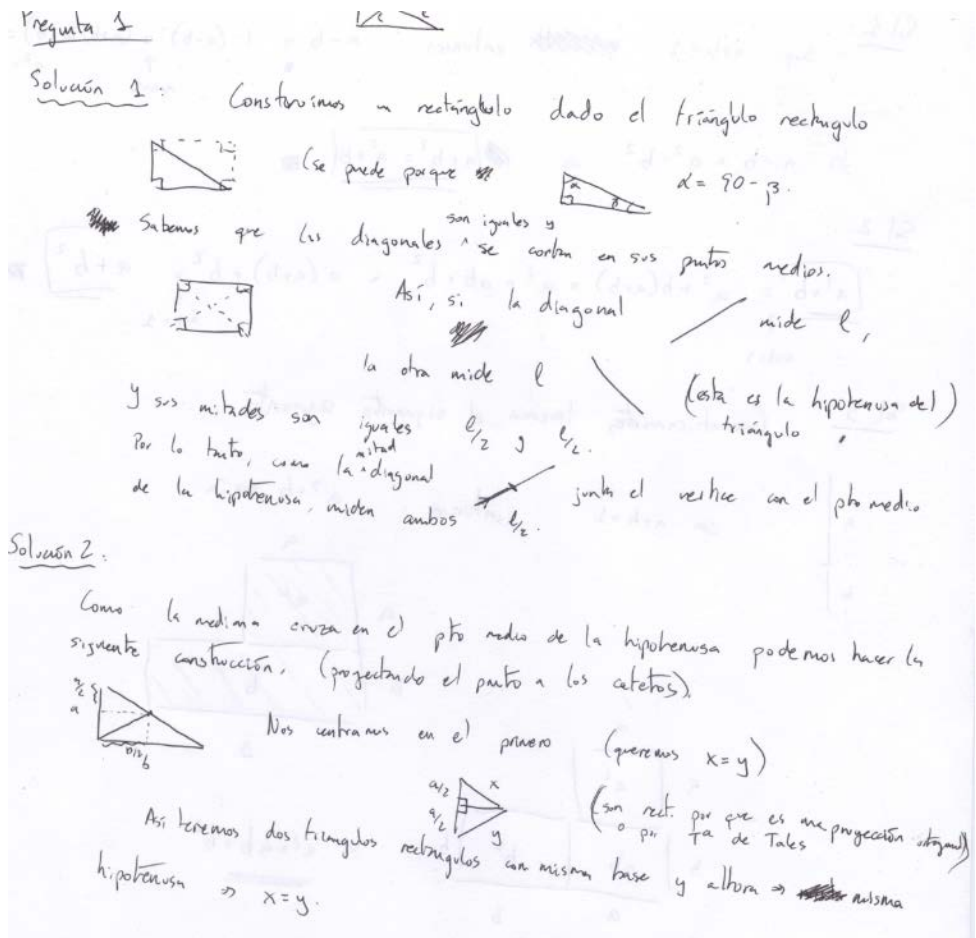 Pregunta 1
Solución 1: Construimos un rectángulo dado el triángulo rectangulo
(se puede porque α β α = 90 - β.
Sabemos que las diagonales son iguales y se cortan en sus puntos medios.
Así, si la diagonal mide l,
la otra mide l (esta es la hipotenusa del triángulo
y sus mitades son iguales l/2 y l/2.
Por lo tanto, como la mitad diagonal junta el vertice con el pto medio
de la hipotenusa, miden ambos l/2.
Solución 2:
Como la mediana cruza en el pto medio de la hipotenusa podemos hacer la
siguiente construcción. (proyectando el punto a los catetos).
a/2
a
b/2
b
Nos centramos en el primero (queremos x=y)
a/2 x
a/2 y
(son rect. por que es una proyección ortogonal)
o por Tª de Tales
Asi tenemos dos triangulos rectángulos con misma base y altura ⇒ misma
hipotenusa ⇒ x=y.